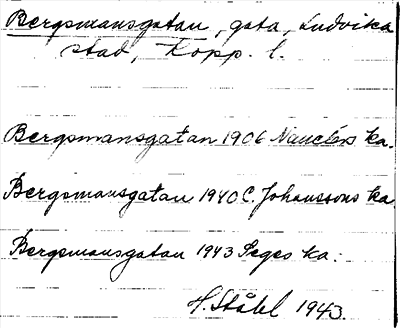 Bergsmansgatan, gata, Ludvika
stad, Kopp. l.
Bergsmansgatan 1906 Nauclérs ka.
Bergsmansgatan 1940 C. Johanssons ka
Bergsmansgatan 1943 Seges ka.
H. Ståhl 1943.